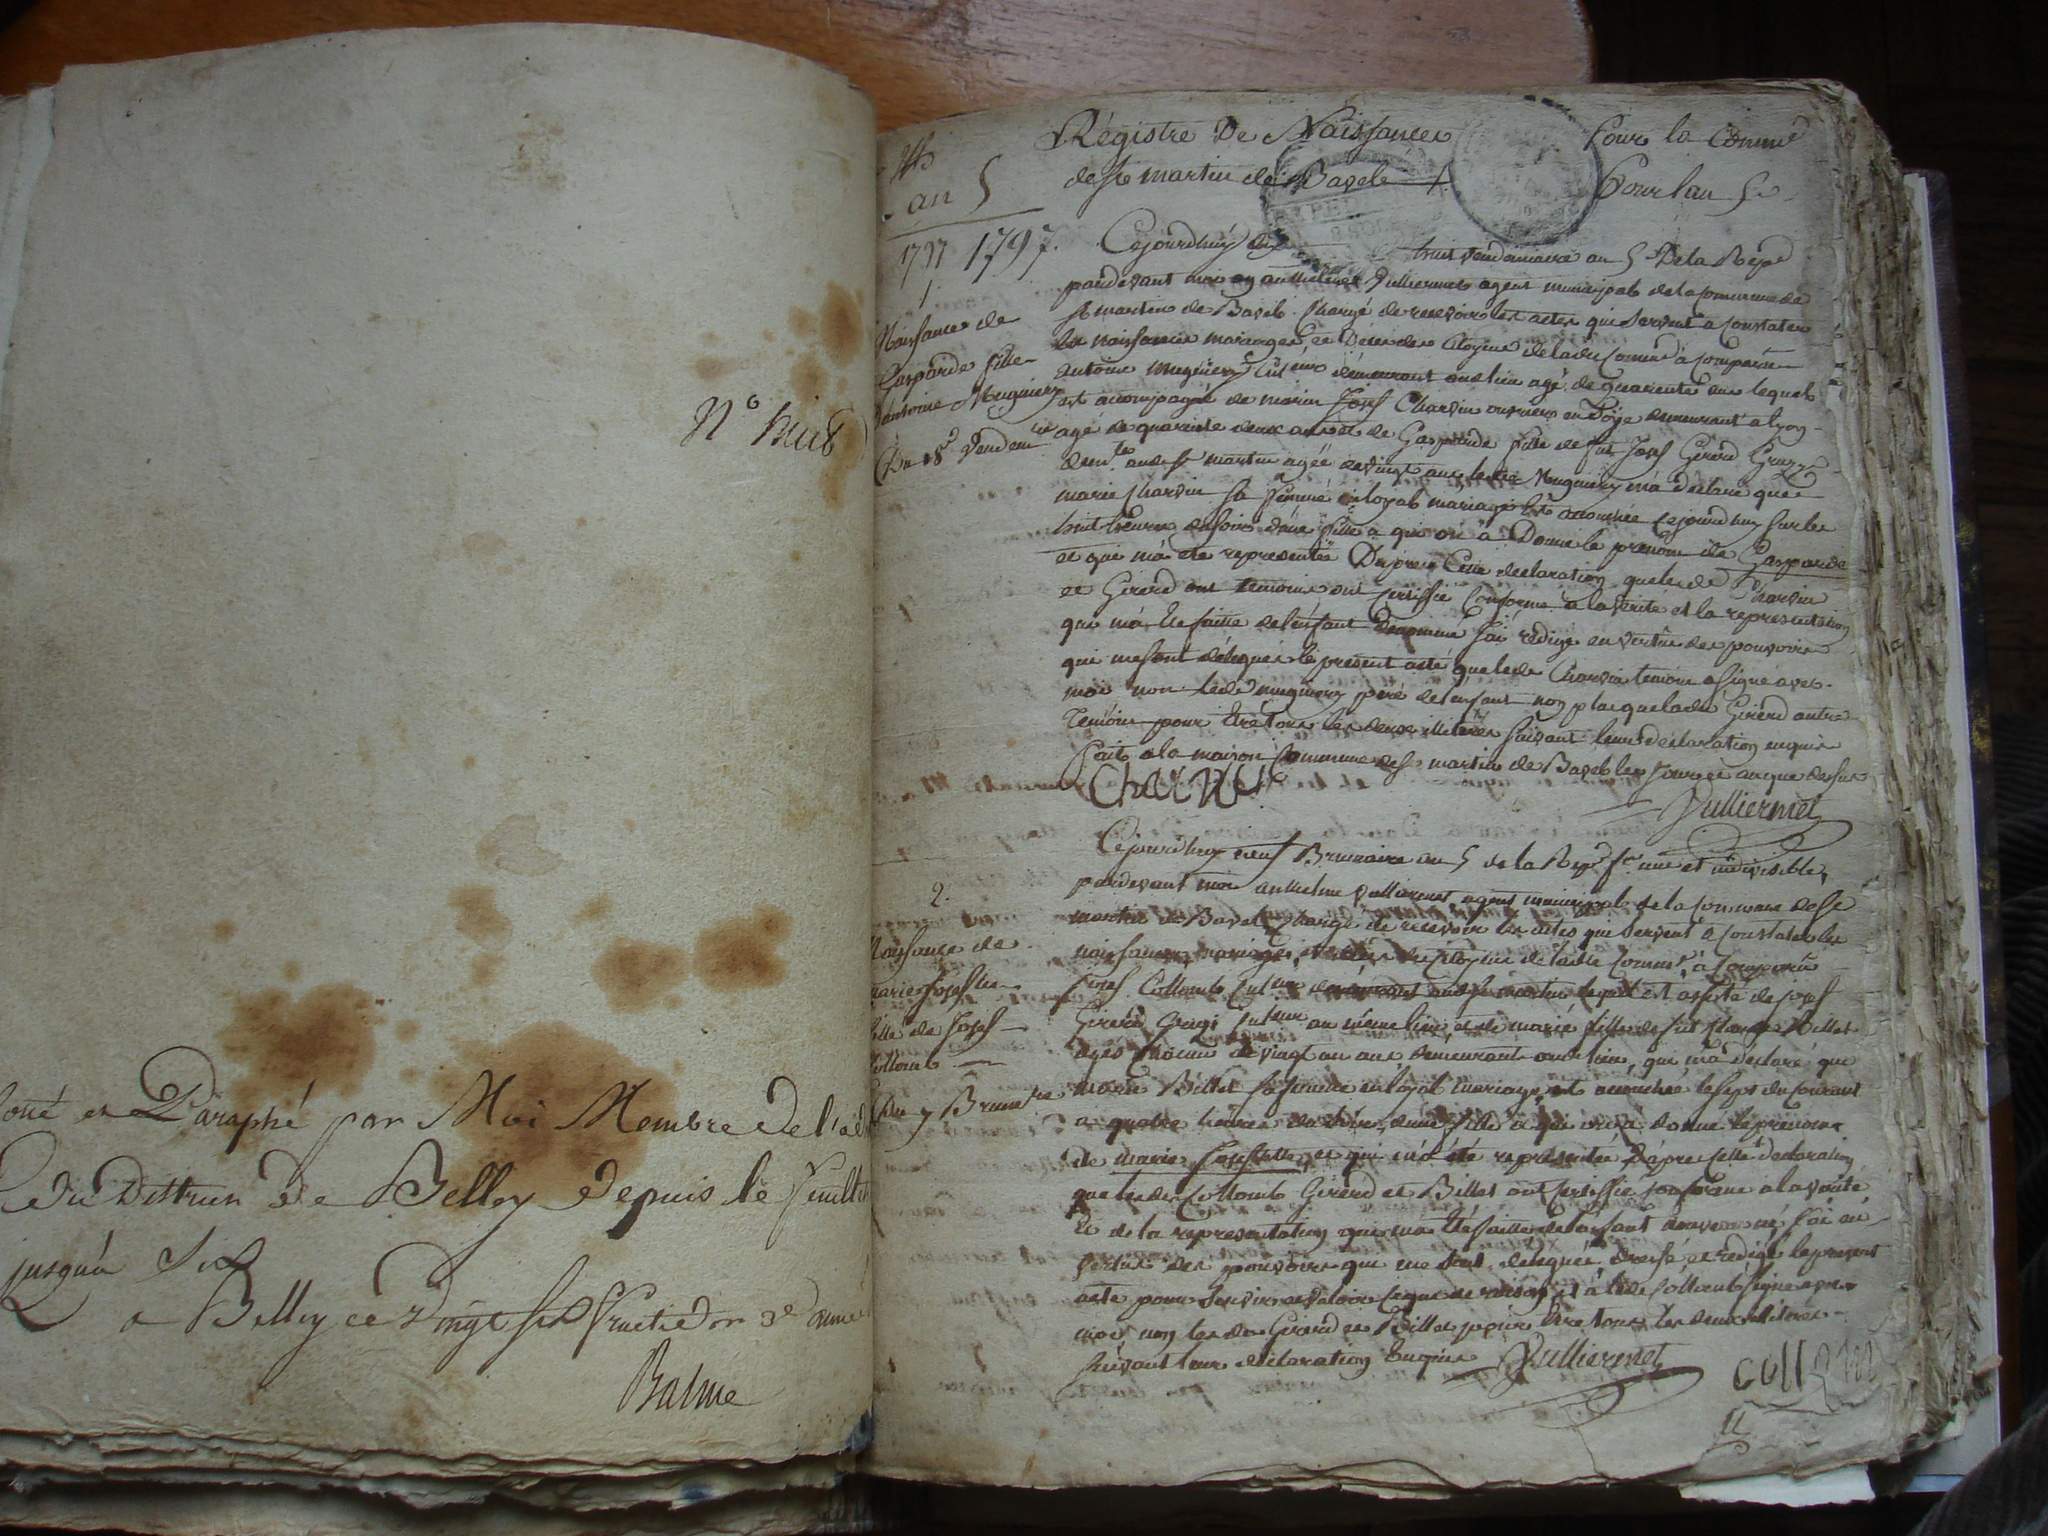 N° huit
Cotté et Paraphé par Moi Membre De l'ad
du District De Belley Depuis le feuillet
jusqu'à Six
a Belley ce Vingt six Fructidor 3e année
Balme
an 5
1797 1797.
Régistre De Naissances Pour la Comme
de St martin de Bavel Pour l'an 5e
1
Naissance de
Gasparde fille
d'antoine Muginier
Du 18e Vendem re
Cejourdhuy dix huit vendemiaire an 5e De la Repe
pardevant moi anthelme Vulliermet agent municipal de la commune de
St martin de Bavel chargé de recevoir les actes qui servent a Constater
les naissances mariages et Décès des Citoyens de ladte Comme à Comparu
antoine Muginier cult eur demeurant audt lieu agé de quarante ans lequel
est accompagné de marin Josef Charvin ouvrier en soÿe demeurant a lyon
agé de quarante deux ans et de Gasparde fille de fut Josef Gérerd
demte audt St martin agée de vingt ans ledt Muginier m'a déclaré que
marie Charvin sa femme en loyal mariage est accouchée cejourdhuy sur les
huit heures du soir d'une fille a qui on a Donné le prenom de Gasparde
et qui m'a été representée D'après cette declaration que les de Charvin
et Girerd ont temoins ont certiffié conforme a la verité et la representation
qui m'a été faitte de l'enfant denommé J'ai rédigé en vertu des pouvoirs
qui me sont délégués le present acte que ledt Charvin temoin a signé avec
moi non ledt muginier pere de l'enfant non plus que ladte Girerd autre
Temoin pour être tous les deux illiterés suivant leurs declaration enquis
fait a la maison Commune de St martin de Bavel les jour et an que dessus
CHARVIN
Vulliermet
2.
Naissance de
marie Josephte
fille de Josef
Collomb
Du 9 Brumre
Cejourdhuy neuf Brumaire an 5 de la Repe fse une et indivisible,
pardevant moi anthelme Vulliermet agent municipal de la Commune de St
martin de Bavel Chargé de recevoir les actes qui servent à Constater les
naissances, mariages, et décès des Citoyens de ladte Comme, à Comparu
Josef Collomb Cult eur demeurant audt St martin lequel est assisté de Josef
Girerd Cult eur au même lieu et de marie fille de fut Billet
agés chacun de vingt un ans demeurants audt lieu, qui m'a déclaré que
marie Billet sa femme en loyal mariage, est accouchée le sept du courant
a quatre heures du soir, d'une fille a qui on a donné le prenom
de marie Josephte, et qui m'a été representée, D'après cette declaration
que les dts Collomb Girerd et Billet ont certiffié conforme a la vérité
Et de la representation qui m'a été faitte de l'enfant denommé J'ai en
vertus des pouvoirs qui me sont délégués, dressé, et redigé le present
acte pour servir et valoir ce que de raison, et à ledt Collomb signé avec
moi, non les dts Girerd et Billet pour être tous les deux illiterés
suivant leur declaration Enquis Vulliermet
COLLOMB